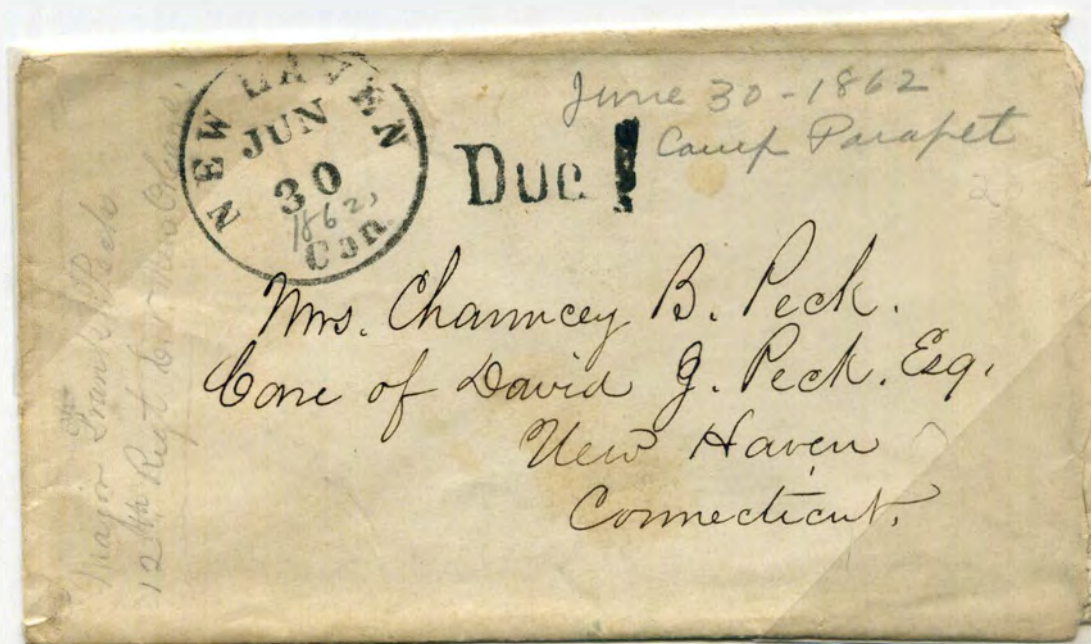 NEW HAVEN
JUN
30
1862,
Con.
Due
June 30 - 1862
Camp Parapet
2
Mrs. Chauncey B. Peck.
Care of David J. Peck. Esq.
New Haven
Connecticut.
Major Frank Peck
12th Regt